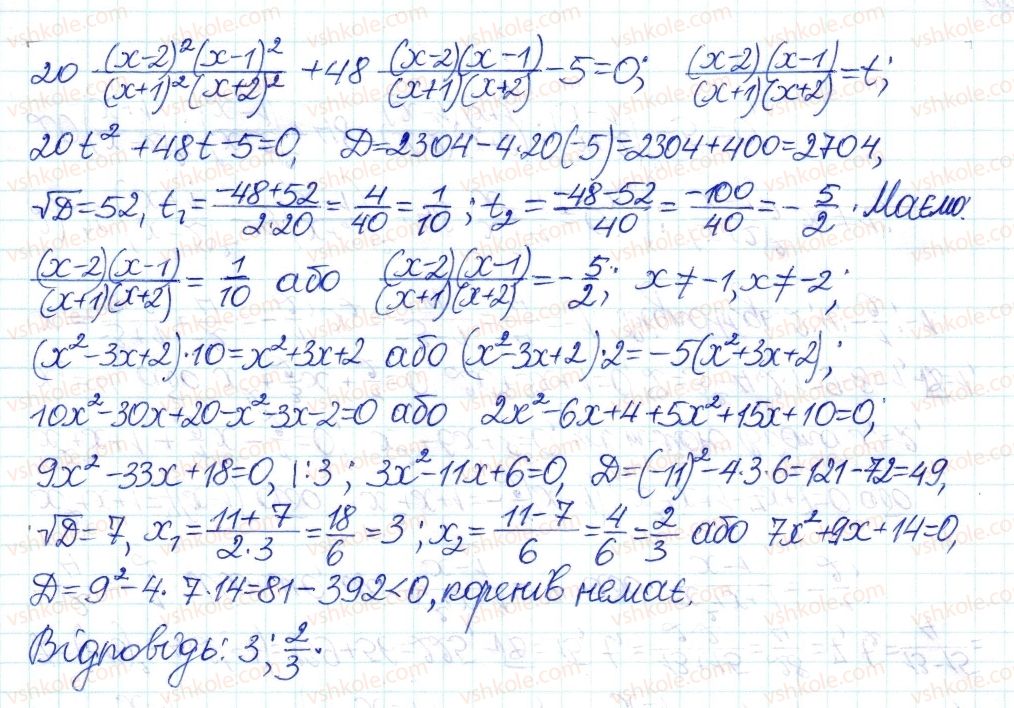 20 (x-2)²(x-1)²/(x+1)²(x+2)² + 48 (x-2)(x-1)/(x+1)(x+2) - 5 = 0; (x-2)(x-1)/(x+1)(x+2) = t;
20t² + 48t - 5 = 0, D = 2304 - 4·20(-5) = 2304 + 400 = 2704,
√D = 52, t₁ = -48+52/2·20 = 4/40 = 1/10; t₂ = -48-52/40 = -100/40 = -5/2. Маємо:
(x-2)(x-1)/(x+1)(x+2) = 1/10 або (x-2)(x-1)/(x+1)(x+2) = -5/2; x ≠ -1, x ≠ -2;
(x² - 3x + 2)·10 = x² + 3x + 2 або (x² - 3x + 2)·2 = -5(x² + 3x + 2);
10x² - 30x + 20 - x² - 3x - 2 = 0 або 2x² - 6x + 4 + 5x² + 15x + 10 = 0;
9x² - 33x + 18 = 0, |:3; 3x² - 11x + 6 = 0, D = (-11)² - 4·3·6 = 121 - 72 = 49,
√D = 7, x₁ = 11+7/2·3 = 18/6 = 3; x₂ = 11-7/6 = 4/6 = 2/3 або 7x² + 9x + 14 = 0,
D = 9² - 4·7·14 = 81 - 392 < 0, коренів немає.
Відповідь: 3; 2/3.